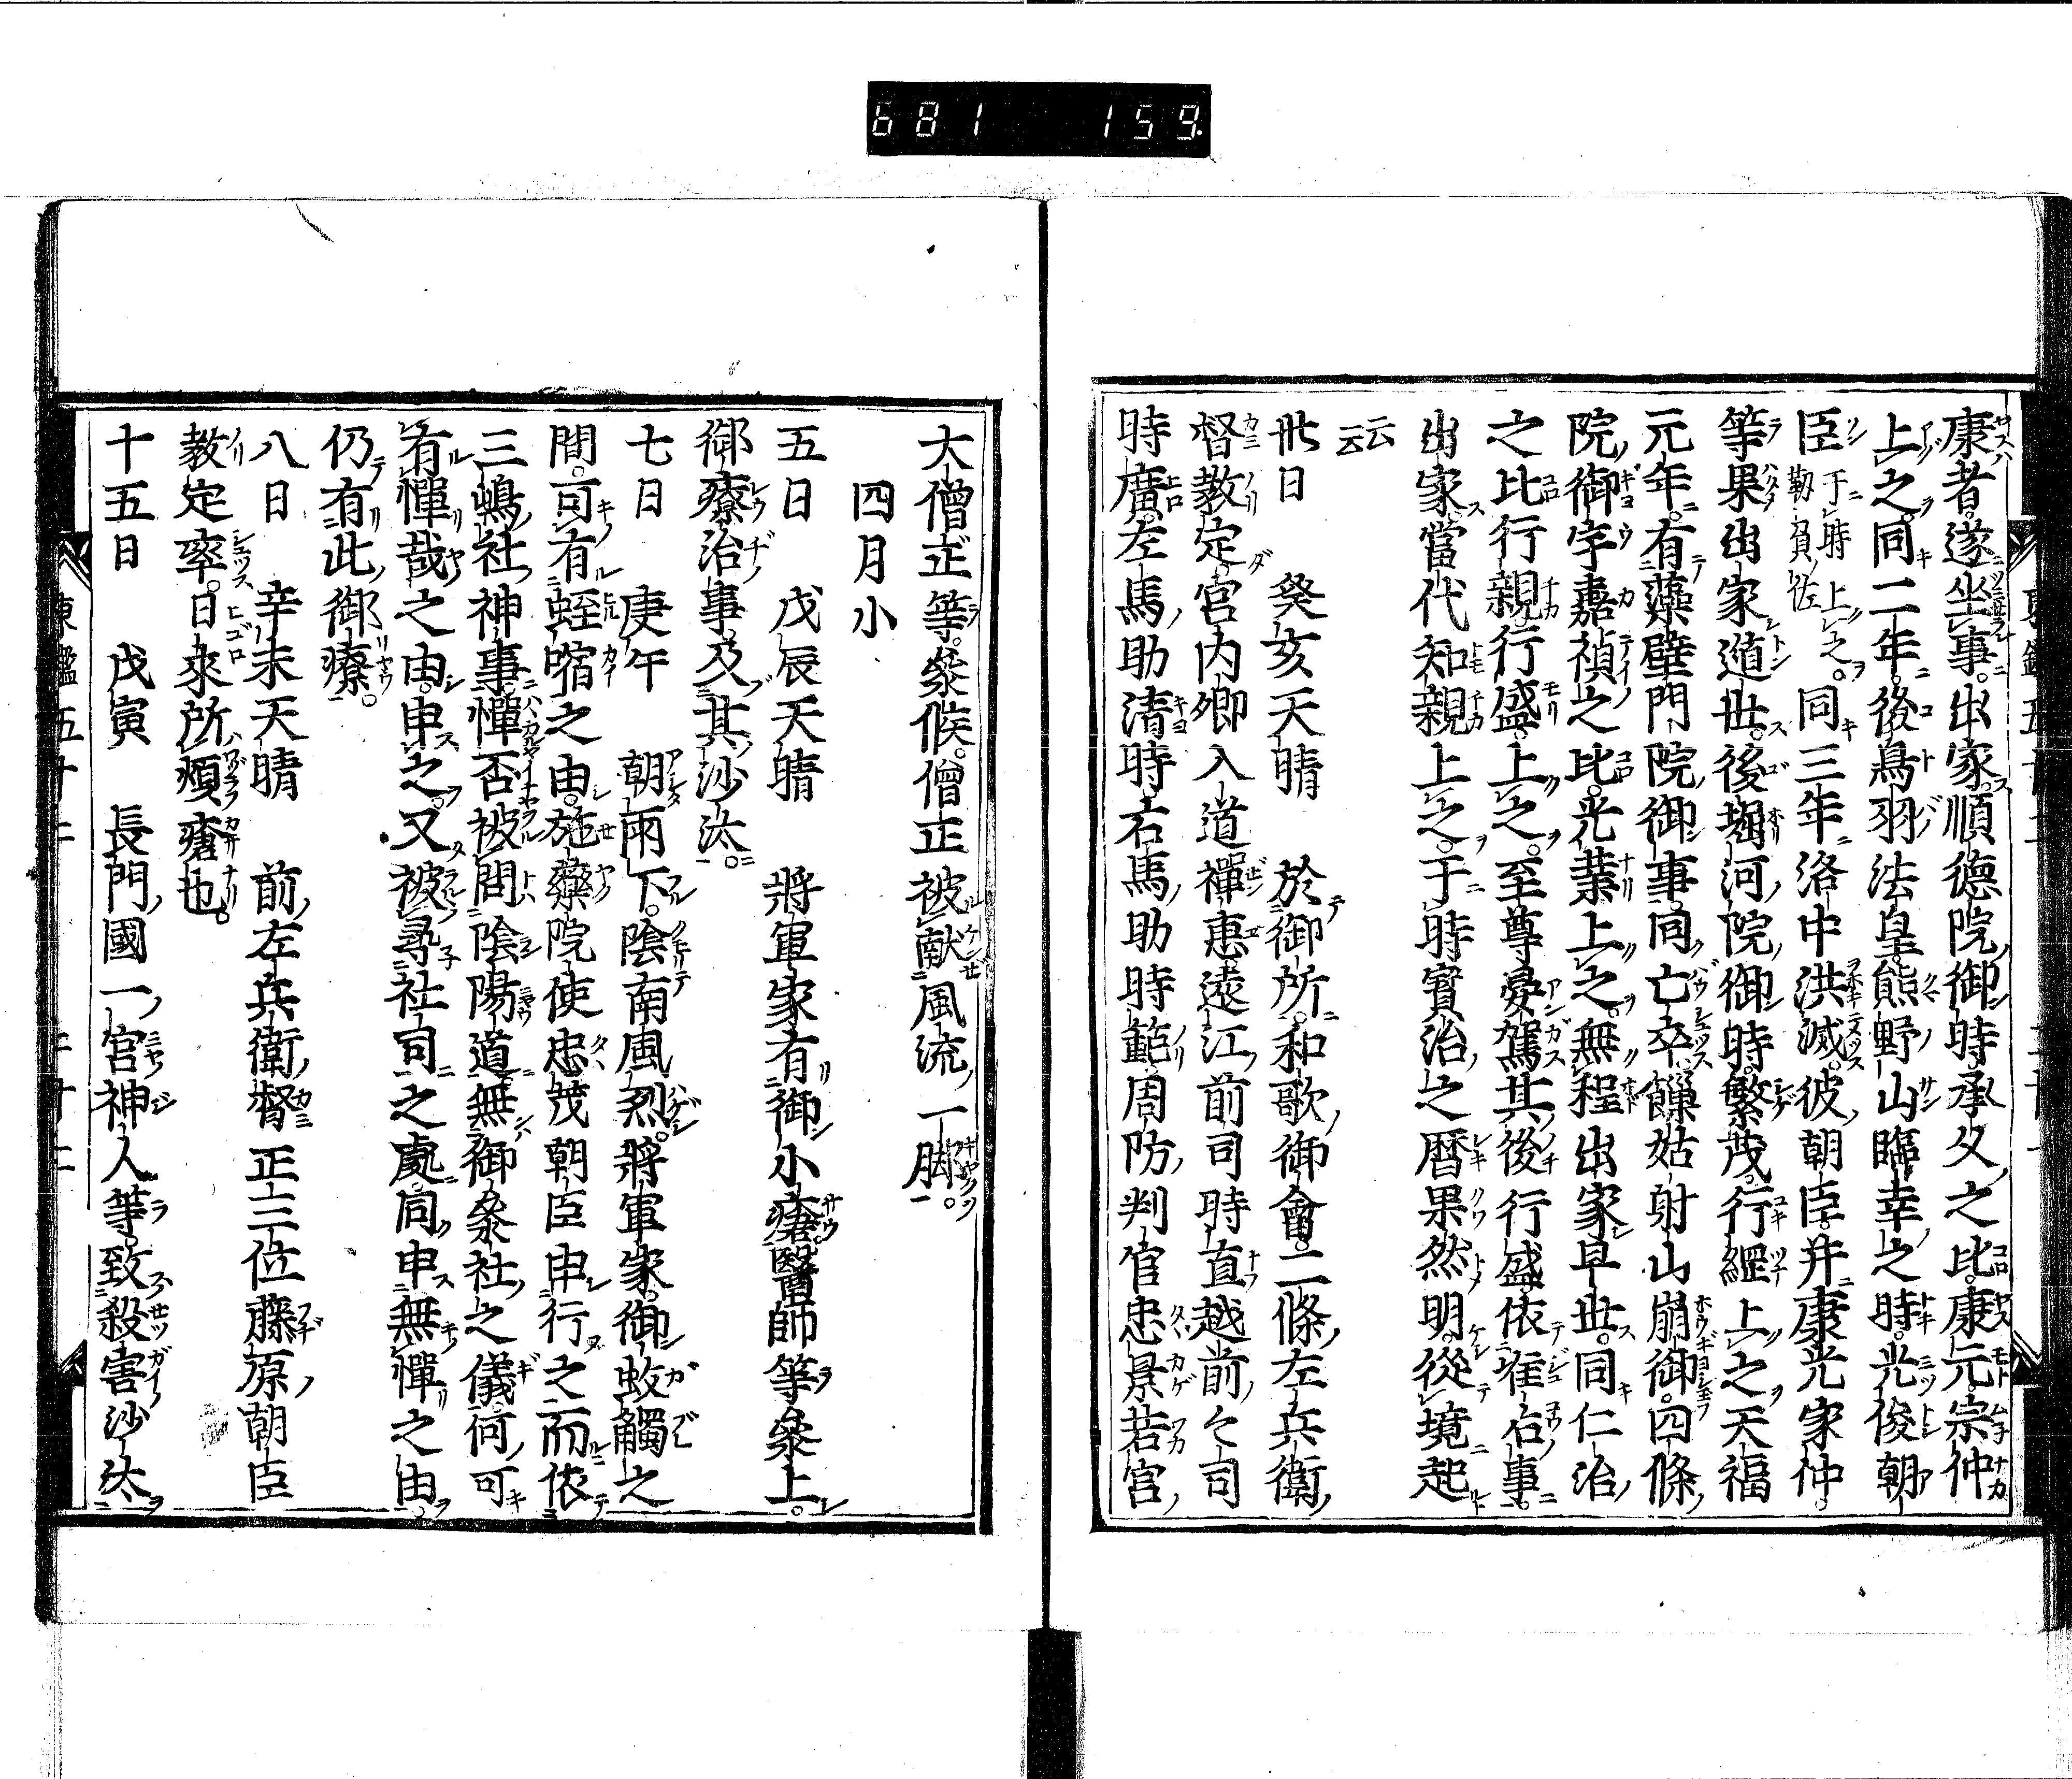 681 159
康者遂坐事出家順德院御時承久之比康元宗仲
上之同二年後鳥羽法皇熊野山臨幸之時光俊朝
臣于時靭負佐上之同三年洛中洪滅彼朝臣并康光家仲
等果出家遁世後堀河院御時繁茂行繼上之天福
元年有藻璧門院御事同亡卒饉姑射山崩御四條
院御宇嘉禎之比光葉上之無程出家早世同仁治
之比行親行盛上之至尊晏駕其後行盛依准右事
出家當代知親上之于時寳治之暦果然明從境起
云云
丗日 癸亥天晴 於御所和歌御會二條左兵衛
督教定宮内卿入道禪惠遠江前司時直越前々司
時廣左馬助清時右馬助時範周防判官忠景若宮
大僧正等參候僧正被献風流一脚
四月小
五日 戊辰天晴 將軍家有御小瘡醫師等參上
御療治事及其沙汰
七日 庚午 朝雨下陰南風烈將軍家御蚊觸之
間可有蛭喰之由施藥院使忠茂朝臣申行之而依
三嶋社神事憚否被問陰陽道無御參社之儀何可
有憚哉之由申之又被尋社司之處同申無憚之由
仍有此御療
八日 辛未天晴 前左兵衛督正三位藤原朝臣
教定卒日來所煩瘡也
十五日 戊寅 長門國一宮神人等致殺害沙汰